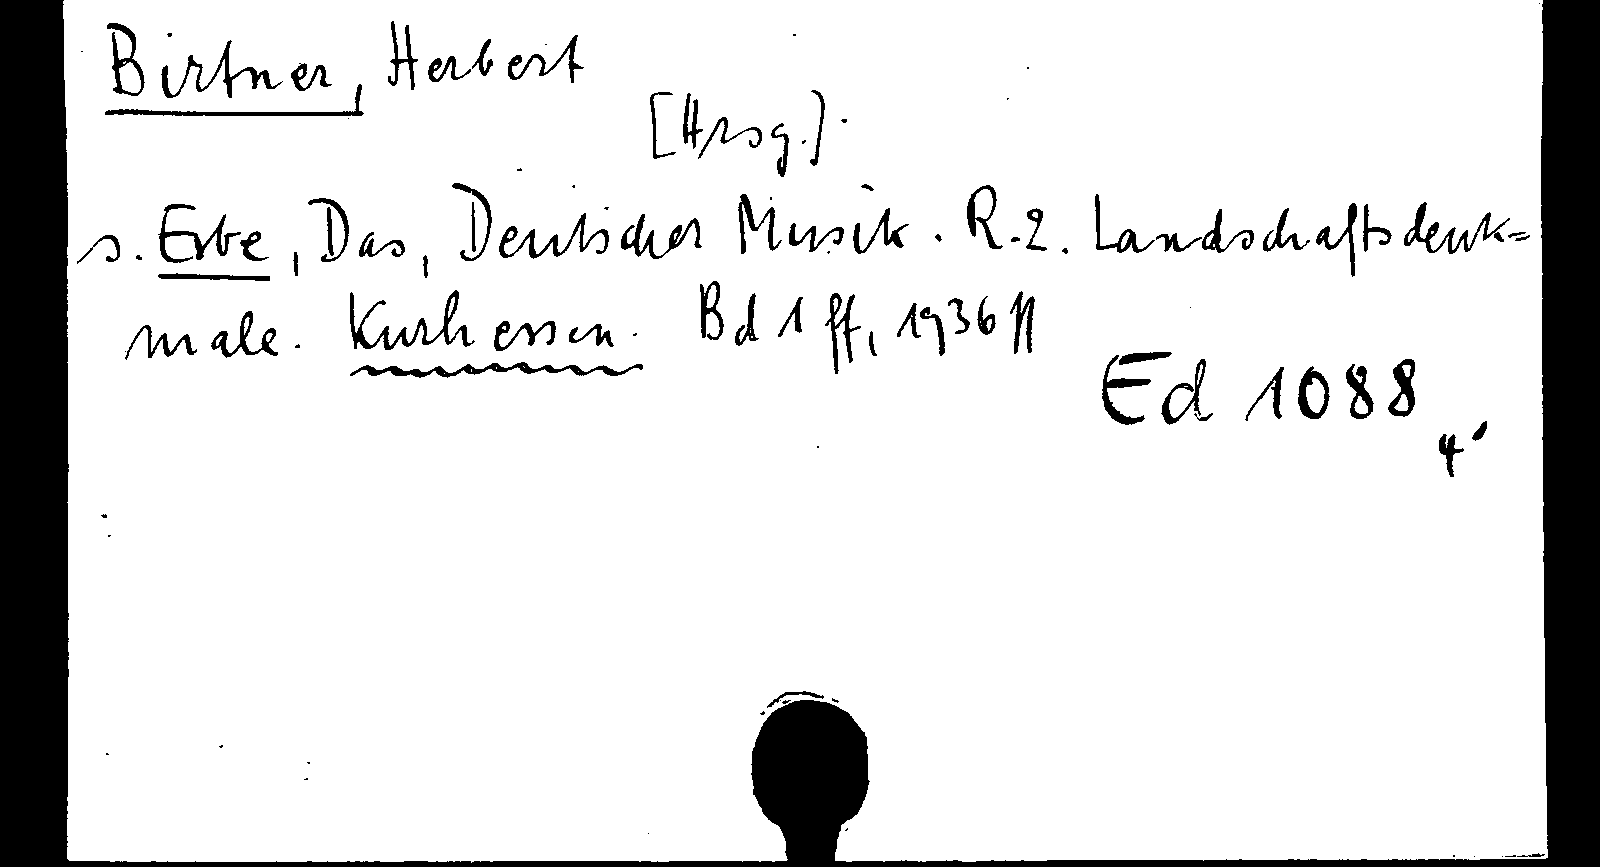 Birtner, Herbert
[Hrsg.]
s. Erbe, Das, Deutscher Musik. R.2. Landschaftsdenk=
male. Kurhessen. Bd 1 ff, 1936 ff
Ed 1088
4°